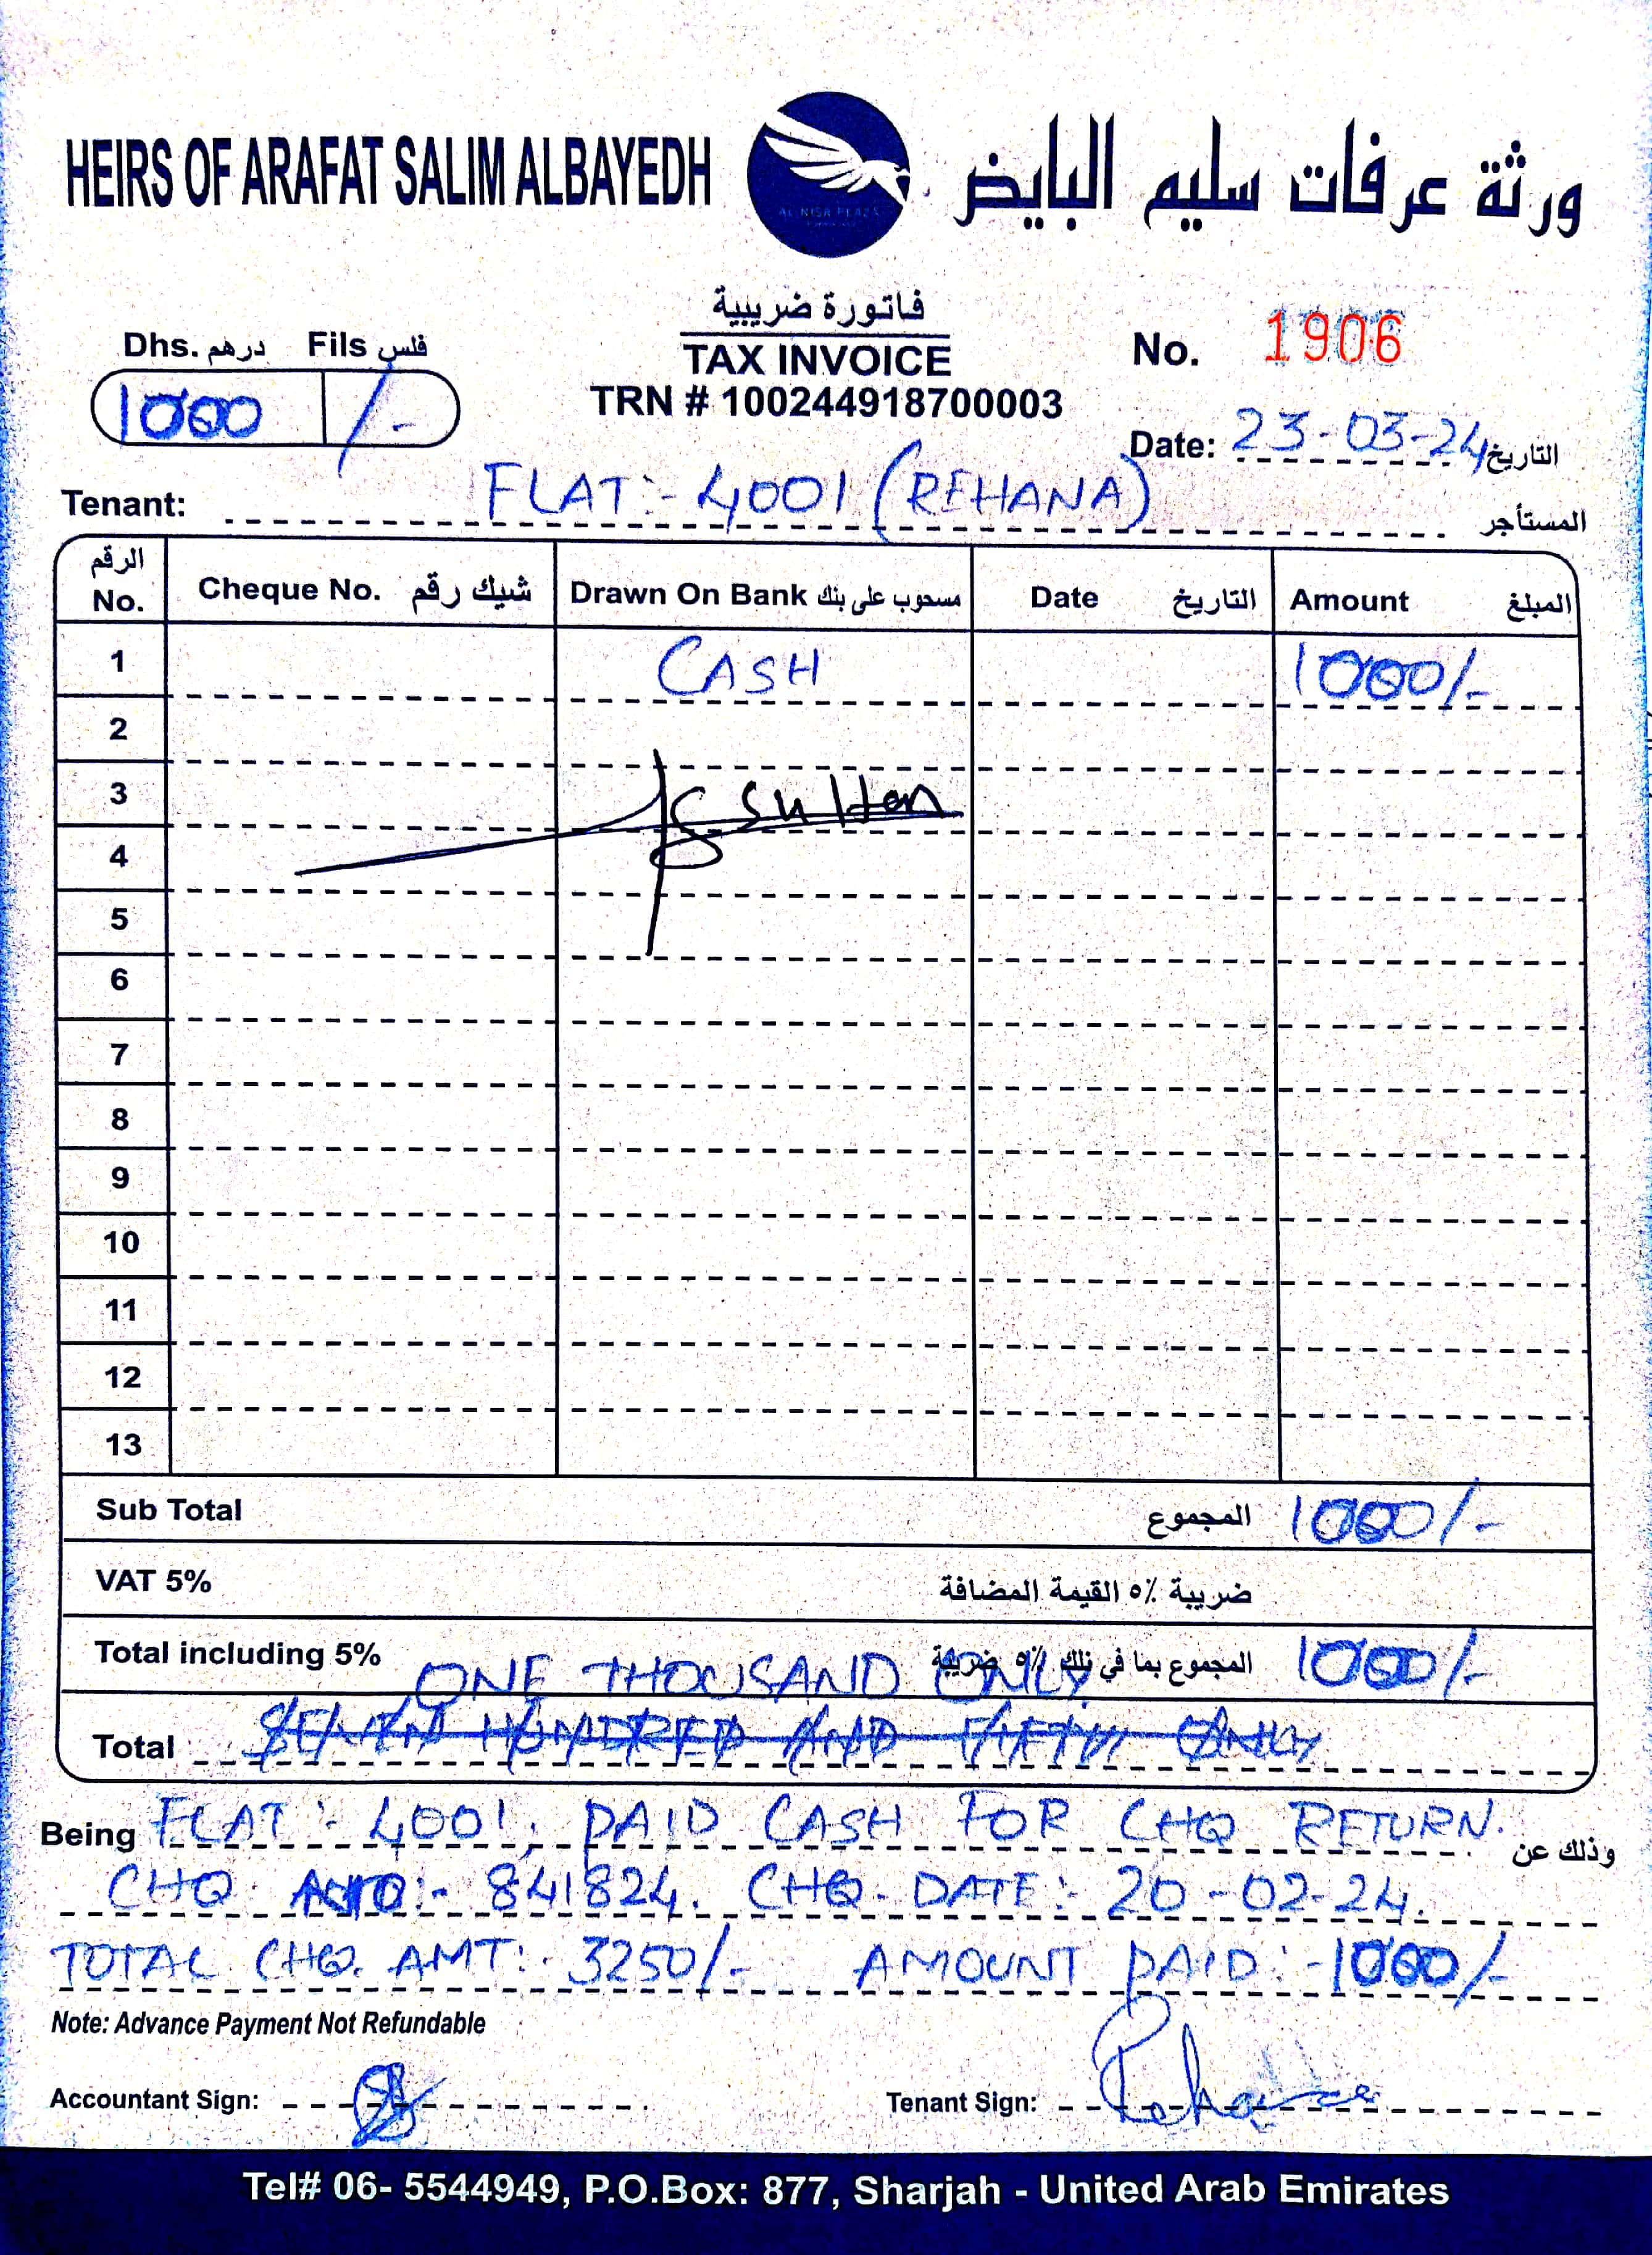 HEIRS OF ARAFAT SALIM ALBAYEDH
ورثة عرفات سليم البايض
AL NISR PLAZA
فاتورة ضريبية
TAX INVOICE
TRN # 100244918700003
Dhs. درهم Fils فلس
1000 /-
No. 1906
Date: 23-03-24 التاريخ
Tenant: FLAT:- 4001 (REHANA) المستأجر
الرقم No. Cheque No. شيك رقم Drawn On Bank مسحوب على بنك Date التاريخ Amount المبلغ
1 CASH 1000/-
2
3 Sultan
4
5
6
7
8
9
10
11
12
13
Sub Total المجموع 1000/-
VAT 5% ضريبة ٥٪ القيمة المضافة
Total including 5% المجموع بما في ذلك ٥٪ ضريبة 1000/-
ONE THOUSAND ONLY
Total SEVEN HUNDRED AND FIFTY ONLY
Being FLAT:- 4001, PAID CASH FOR CHQ RETURN. وذلك عن
CHQ NO:- 841824. CHQ- DATE:- 20-02-24.
TOTAL CHQ. AMT:- 3250/- AMOUNT PAID:- 1000/-
Note: Advance Payment Not Refundable
Accountant Sign:
Tenant Sign: Rehana
Tel# 06- 5544949, P.O.Box: 877, Sharjah - United Arab Emirates